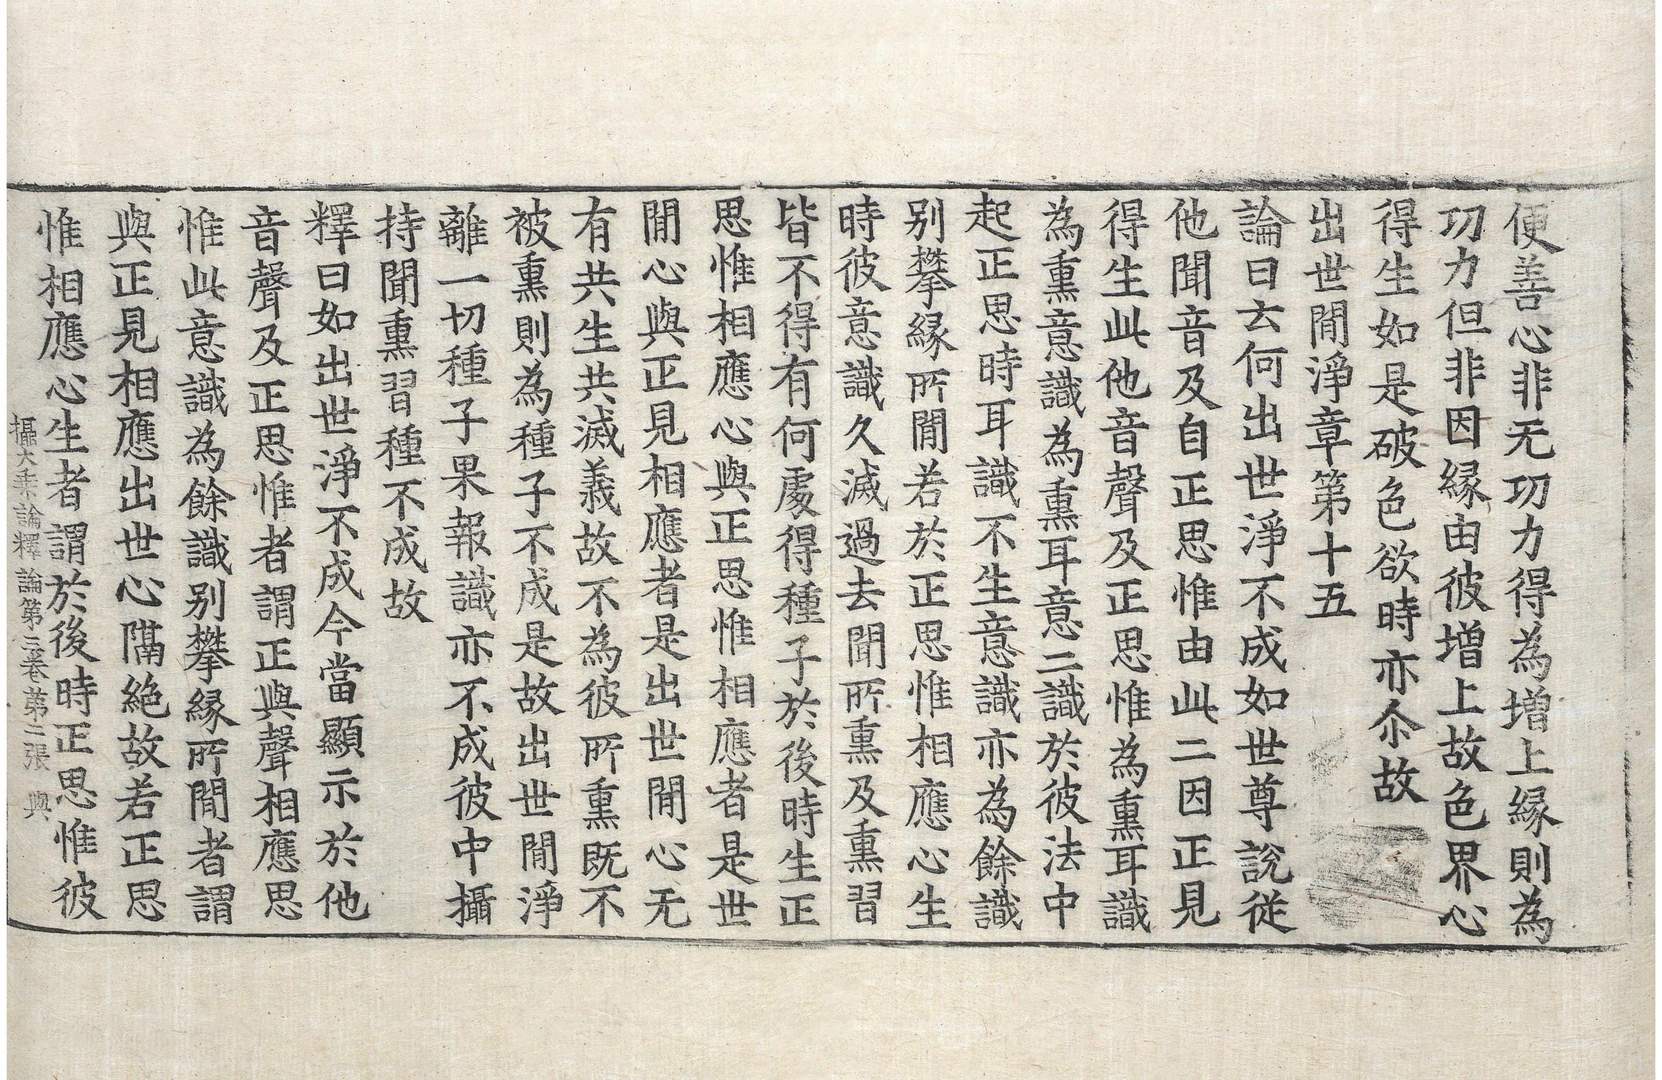 便善心非无功力得為增上緣則為
功力但非因緣由彼增上故色界心
得生如是破色欲時亦尒故
出世間淨章第十五
論曰云何出世淨不成如世尊說従
他聞音及自正思惟由此二因正見
得生此他音聲及正思惟為熏耳識
為熏意識為熏耳意二識於彼法中
起正思時耳識不生意識亦為餘識
别攀緣所間若於正思惟相應心生
時彼意識久滅過去聞所熏及熏習
皆不得有何處得種子於後時生正
思惟相應心與正思惟相應者是世
間心與正見相應者是出世間心无
有共生共滅義故不為彼所熏既不
被熏則為種子不成是故出世間淨
離一切種子果報識亦不成彼中攝
持聞熏習種不成故
釋曰如出世淨不成今當顯示於他
音聲及正思惟者謂正與聲相應思
惟此意識為餘識别攀緣所間者謂
與正見相應出世心隔絶故若正思
惟相應心生者謂於後時正思惟彼
攝大乗論釋論第三卷第二張 興